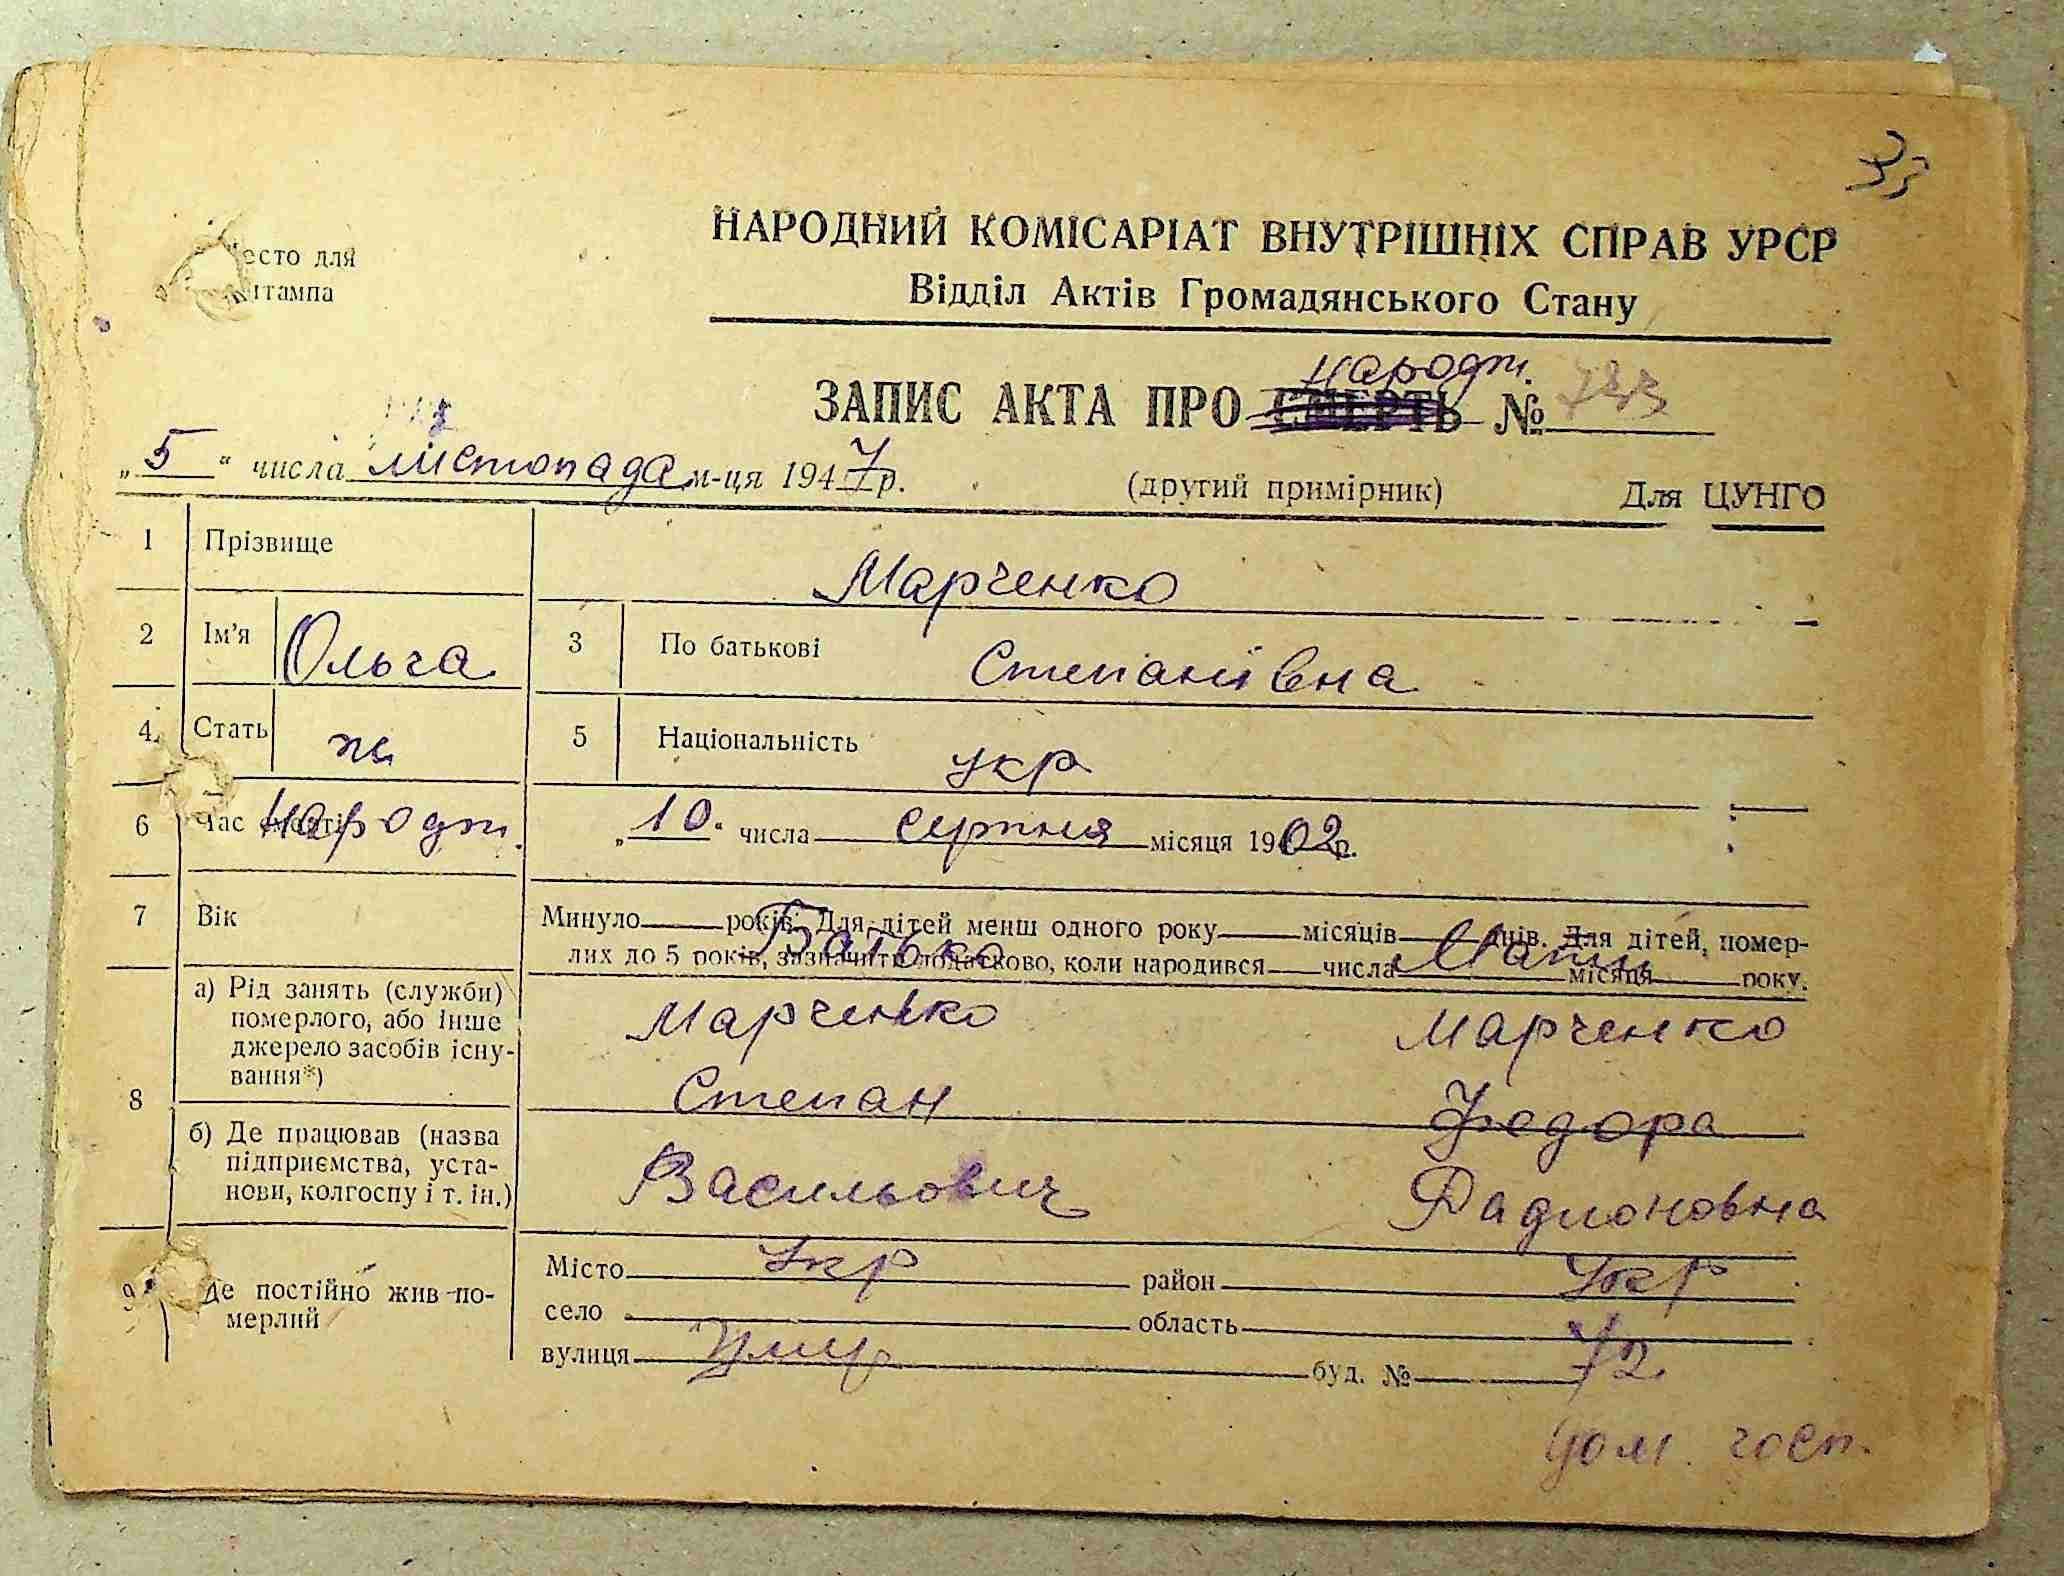 33
есто для
НАРОДНИЙ КОМІСАРІАТ ВНУТРІШНІХ СПРАВ УРСР
штампа
Відділ Актів Громадянського Стану
народж.
ЗАПИС АКТА ПРО СМЕРТЬ №
„5“ числа листопада м-ця 1947р. (другий примірник) Для ЦУНГО
1 Прізвище Марченко
2 Ім'я Ольга 3 По батькові Степанівна
4. Стать ж 5 Національність укр
6 Час смерті народж. „10“ числа серпня місяця 1902р.
7 Вік Минуло років. Для дітей менш одного року місяців днів. Для дітей, помер-
лих до 5 років, зазначити додатково, коли народився числа місяця року.
Батько Мати
8 а) Рід занять (служби) померлого, або інше джерело засобів існу-вання*)
Марченко Марченко
Степан Федора
б) Де працював (назва підприємства, уста-нови, колгоспу і т. ін.)
Васильович Радионовна
9 Де постійно жив по-мерлий
Місто укр район укр
село область
вулиця буд. № 72
дом. госп.